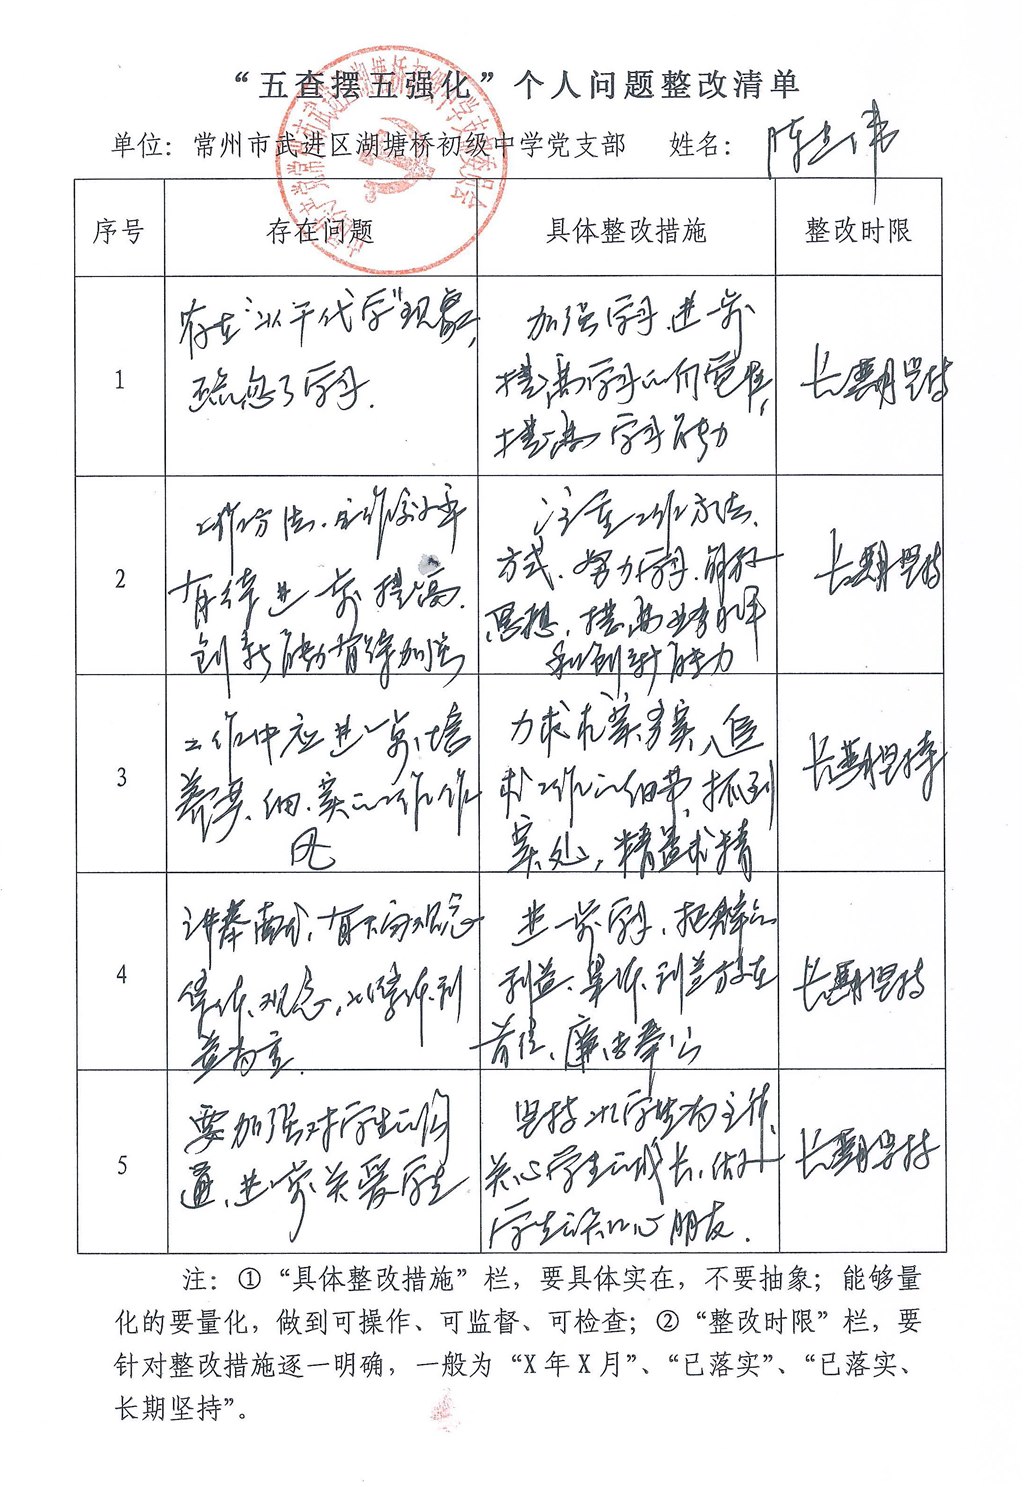 “五查摆五强化”个人问题整改清单
单位：常州市武进区湖塘桥初级中学党支部 姓名：陈立伟
序号 存在问题 具体整改措施 整改时限
1
存在“以干代学”现象，
疏忽了学习.
加强学习，进一步
提高学习的自觉性，
提高学习能力
长期坚持
2
工作方法、工作水平
有待进一步提高.
创新能力有待加强
注重工作方法、
方式、努力学习、解放
思想，提高业务水平
和创新能力
长期坚持
3
工作中应进一步培
养严、细、实的工作作
风
力求扎实务实，追
求工作的细节，抓到
实处，精益求精
长期坚持
4
讲奉献，有大局观念
集体观念，以集体利
益为主.
进一步学习，把群众
利益、集体利益放在
首位、廉洁奉公
长期坚持
5
要加强对学生的沟
通，进一步关爱学生
坚持以学生为主体、
关心学生的成长，做
学生的知心朋友.
长期坚持
注：①“具体整改措施”栏，要具体实在，不要抽象；能够量
化的要量化，做到可操作、可监督、可检查；②“整改时限”栏，要
针对整改措施逐一明确，一般为“X年X月”、“已落实”、“已落实、
长期坚持”。